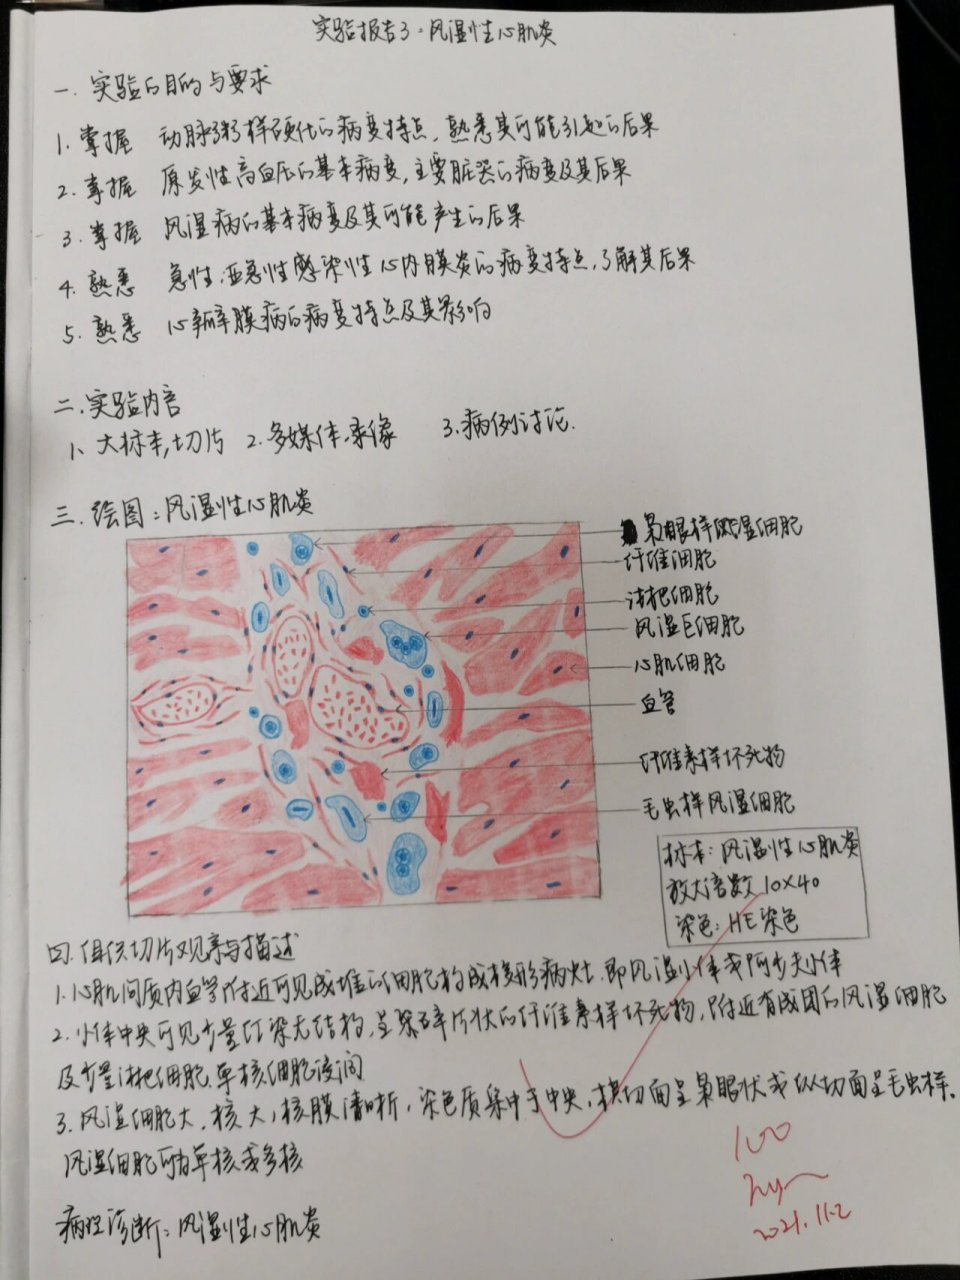 实验报告3：风湿性心肌炎
一. 实验的目的与要求
1. 掌握 动脉粥样硬化的病变特点，熟悉其可能引起的后果
2. 掌握 原发性高血压的基本病变，主要脏器的病变及其后果
3. 掌握 风湿病的基本病变及其可能产生的后果
4. 熟悉 急性，亚急性感染性心内膜炎的病变特点，了解其后果
5. 熟悉 心瓣膜病的病变特点及其影响
二. 实验内容
1、大标本，切片 2. 多媒体录像 3. 病例讨论.
三. 绘图：风湿性心肌炎
枭眼样风湿细胞
纤维细胞
淋巴细胞
风湿巨细胞
心肌细胞
血管
纤维素样坏死物
毛虫样风湿细胞
标本：风湿性心肌炎
放大倍数 10×40
染色：HE染色
四. 组织切片观察与描述
1. 心肌间质内血管附近可见成堆的细胞构成梭形病灶. 即风湿小体或阿少夫小体
2. 小体中央可见少量红染无结构，呈絮碎片状的纤维素样坏死物，附近有成团的风湿细胞
及少量淋巴细胞、单核细胞浸润
3. 风湿细胞大，核大，核膜清晰，染色质集中于中央，横切面呈枭眼状或纵切面呈毛虫样。
风湿细胞可为单核或多核
病理诊断：风湿性心肌炎
100
2021.11.2